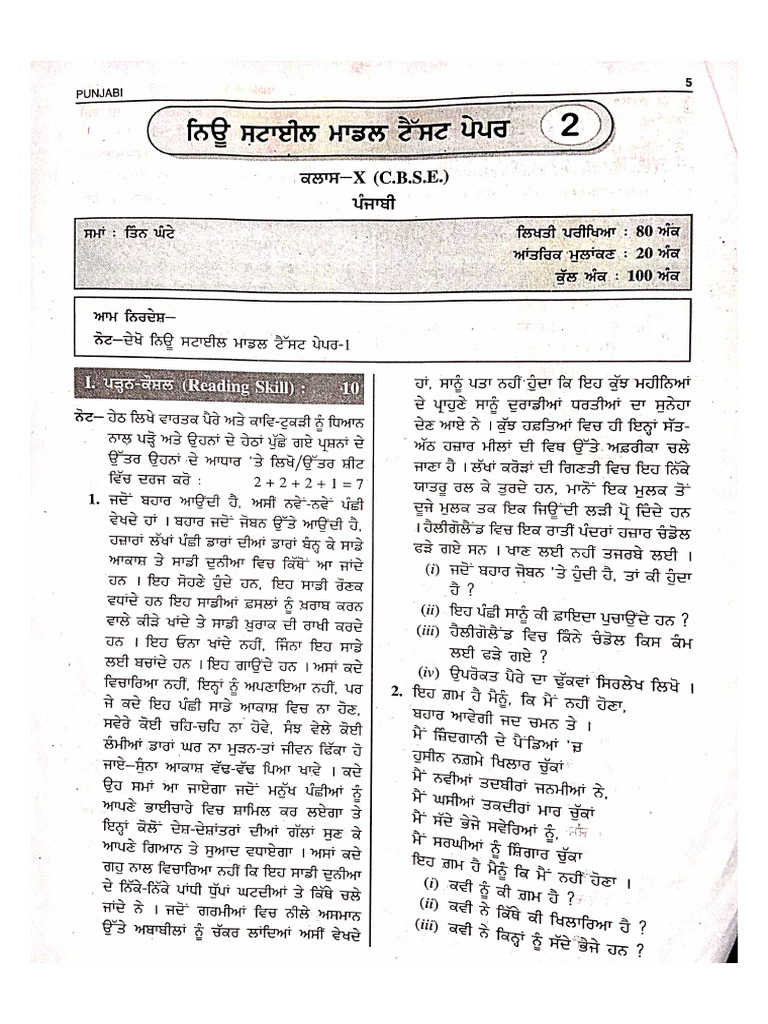 PUNJABI
5
ਨਿਊ ਸਟਾਈਲ ਮਾਡਲ ਟੈੱਸਟ ਪੇਪਰ 2
ਕਲਾਸ–X (C.B.S.E.)
ਪੰਜਾਬੀ
ਸਮਾਂ : ਤਿੰਨ ਘੰਟੇ
ਲਿਖਤੀ ਪਰੀਖਿਆ : 80 ਅੰਕ
ਆਂਤਰਿਕ ਮੁਲਾਂਕਣ : 20 ਅੰਕ
ਕੁੱਲ ਅੰਕ : 100 ਅੰਕ
ਆਮ ਨਿਰਦੇਸ਼–
ਨੋਟ–ਦੇਖੋ ਨਿਊ ਸਟਾਈਲ ਮਾਡਲ ਟੈੱਸਟ ਪੇਪਰ-1
I. ਪੜ੍ਹਨ-ਕੌਸ਼ਲ (Reading Skill) : 10
ਨੋਟ– ਹੇਠ ਲਿਖੇ ਵਾਰਤਕ ਪੈਰੇ ਅਤੇ ਕਾਵਿ-ਟੁਕੜੀ ਨੂੰ ਧਿਆਨ
ਨਾਲ ਪੜ੍ਹੋ ਅਤੇ ਉਹਨਾਂ ਦੇ ਹੇਠਾਂ ਪੁੱਛੇ ਗਏ ਪ੍ਰਸ਼ਨਾਂ ਦੇ
ਉੱਤਰ ਉਹਨਾਂ ਦੇ ਆਧਾਰ 'ਤੇ ਲਿਖੋ/ਉੱਤਰ ਸ਼ੀਟ
ਵਿੱਚ ਦਰਜ ਕਰੋ : 2 + 2 + 2 + 1 = 7
1. ਜਦੋਂ ਬਹਾਰ ਆਉਂਦੀ ਹੈ, ਅਸੀਂ ਨਵੇਂ-ਨਵੇਂ ਪੰਛੀ
ਵੇਖਦੇ ਹਾਂ । ਬਹਾਰ ਜਦੋਂ ਜੋਬਨ ਉੱਤੇ ਆਉਂਦੀ ਹੈ,
ਹਜ਼ਾਰਾਂ ਲੱਖਾਂ ਪੰਛੀ ਡਾਰਾਂ ਦੀਆਂ ਡਾਰਾਂ ਬੰਨ੍ਹ ਕੇ ਸਾਡੇ
ਆਕਾਸ਼ ਤੇ ਸਾਡੀ ਦੁਨੀਆ ਵਿਚ ਕਿੱਥੋਂ ਆ ਜਾਂਦੇ
ਹਨ । ਇਹ ਸੋਹਣੇ ਹੁੰਦੇ ਹਨ, ਇਹ ਸਾਡੀ ਰੌਣਕ
ਵਧਾਂਦੇ ਹਨ ਇਹ ਸਾਡੀਆਂ ਫ਼ਸਲਾਂ ਨੂੰ ਖ਼ਰਾਬ ਕਰਨ
ਵਾਲੇ ਕੀੜੇ ਖਾਂਦੇ ਤੇ ਸਾਡੀ ਖ਼ੁਰਾਕ ਦੀ ਰਾਖੀ ਕਰਦੇ
ਹਨ । ਇਹ ਓਨਾ ਖਾਂਦੇ ਨਹੀਂ, ਜਿੰਨਾ ਇਹ ਸਾਡੇ
ਲਈ ਬਚਾਂਦੇ ਹਨ । ਇਹ ਗਾਉਂਦੇ ਹਨ । ਅਸਾਂ ਕਦੇ
ਵਿਚਾਰਿਆ ਨਹੀਂ, ਇਨ੍ਹਾਂ ਨੂੰ ਅਪਣਾਇਆ ਨਹੀਂ, ਪਰ
ਜੇ ਕਦੇ ਇਹ ਪੰਛੀ ਸਾਡੇ ਆਕਾਸ਼ ਵਿਚ ਨਾ ਹੋਣ,
ਸਵੇਰੇ ਕੋਈ ਚਹਿ-ਚਹਿ ਨਾ ਹੋਵੇ, ਸੰਝ ਵੇਲੇ ਕੋਈ
ਲੰਮੀਆਂ ਡਾਰਾਂ ਘਰ ਨਾ ਮੁੜਨ-ਤਾਂ ਜੀਵਨ ਫਿੱਕਾ ਹੋ
ਜਾਏ–ਸੁੰਨਾ ਆਕਾਸ਼ ਵੱਢ-ਵੱਢ ਪਿਆ ਖਾਵੇ । ਕਦੇ
ਉਹ ਸਮਾਂ ਆ ਜਾਏਗਾ ਜਦੋਂ ਮਨੁੱਖ ਪੰਛੀਆਂ ਨੂੰ
ਆਪਣੇ ਭਾਈਚਾਰੇ ਵਿਚ ਸ਼ਾਮਿਲ ਕਰ ਲਏਗਾ ਤੇ
ਇਨ੍ਹਾਂ ਕੋਲੋਂ ਦੇਸ਼-ਦੇਸ਼ਾਂਤਰਾਂ ਦੀਆਂ ਗੱਲਾਂ ਸੁਣ ਕੇ
ਆਪਣੇ ਗਿਆਨ ਤੇ ਸੁਆਦ ਵਧਾਏਗਾ । ਅਸਾਂ ਕਦੇ
ਗਹੁ ਨਾਲ ਵਿਚਾਰਿਆ ਨਹੀਂ ਕਿ ਇਹ ਸਾਡੀ ਦੁਨੀਆ
ਦੇ ਨਿੱਕੇ-ਨਿੱਕੇ ਪਾਂਧੀ ਧੁੱਪਾਂ ਘਟਦੀਆਂ ਤੇ ਕਿੱਥੇ ਚਲੇ
ਜਾਂਦੇ ਨੇ । ਜਦੋਂ ਗਰਮੀਆਂ ਵਿਚ ਨੀਲੇ ਅਸਮਾਨ
ਉੱਤੇ ਅਬਾਬੀਲਾਂ ਨੂੰ ਚੱਕਰ ਲਾਂਦਿਆਂ ਅਸੀਂ ਵੇਖਦੇ
ਹਾਂ, ਸਾਨੂੰ ਪਤਾ ਨਹੀਂ ਹੁੰਦਾ ਕਿ ਇਹ ਕੁੱਝ ਮਹੀਨਿਆਂ
ਦੇ ਪ੍ਰਾਹੁਣੇ ਸਾਨੂੰ ਦੁਰਾਡੀਆਂ ਧਰਤੀਆਂ ਦਾ ਸੁਨੇਹਾ
ਦੇਣ ਆਏ ਨੇ । ਕੁੱਝ ਹਫ਼ਤਿਆਂ ਵਿਚ ਹੀ ਇਨ੍ਹਾਂ ਸੱਤ-
ਅੱਠ ਹਜ਼ਾਰ ਮੀਲਾਂ ਦੀ ਵਿਥ ਉੱਤੇ ਅਫ਼ਰੀਕਾ ਚਲੇ
ਜਾਣਾ ਹੈ । ਲੱਖਾਂ ਕਰੋੜਾਂ ਦੀ ਗਿਣਤੀ ਵਿਚ ਇਹ ਨਿੱਕੇ
ਯਾਤਰੂ ਰਲ ਕੇ ਤੁਰਦੇ ਹਨ, ਮਾਨੋਂ ਇਕ ਮੁਲਕ ਤੋਂ
ਦੂਜੇ ਮੁਲਕ ਤਕ ਇਕ ਜਿਊਂਦੀ ਲੜੀ ਪ੍ਰੋ ਦਿੰਦੇ ਹਨ
। ਹੈਲੀਗੋਲੈਂਡ ਵਿਚ ਇਕ ਰਾਤੀਂ ਪੰਦਰਾਂ ਹਜ਼ਾਰ ਚੰਡੋਲ
ਫੜੇ ਗਏ ਸਨ । ਖਾਣ ਲਈ ਨਹੀਂ ਤਜਰਬੇ ਲਈ ।
(i) ਜਦੋਂ ਬਹਾਰ ਜੋਬਨ 'ਤੇ ਹੁੰਦੀ ਹੈ, ਤਾਂ ਕੀ ਹੁੰਦਾ
ਹੈ ?
(ii) ਇਹ ਪੰਛੀ ਸਾਨੂੰ ਕੀ ਫ਼ਾਇਦਾ ਪੁਚਾਉਂਦੇ ਹਨ ?
(iii) ਹੈਲੀਗੋਲੈਂਡ ਵਿਚ ਕਿੰਨੇ ਚੰਡੋਲ ਕਿਸ ਕੰਮ
ਲਈ ਫੜੇ ਗਏ ?
(iv) ਉਪਰੋਕਤ ਪੈਰੇ ਦਾ ਢੁੱਕਵਾਂ ਸਿਰਲੇਖ ਲਿਖੋ ।
2. ਇਹ ਗ਼ਮ ਹੈ ਮੈਨੂੰ, ਕਿ ਮੈਂ ਨਹੀਂ ਹੋਣਾ,
ਬਹਾਰ ਆਵੇਗੀ ਜਦ ਚਮਨ ਤੇ ।
ਮੈਂ ਜ਼ਿੰਦਗਾਨੀ ਦੇ ਪੈਂਡਿਆਂ 'ਚ
ਹੁਸੀਨ ਨਗ਼ਮੇ ਖਿਲਾਰ ਚੁੱਕਾਂ
ਮੈਂ ਨਵੀਆਂ ਤਦਬੀਰਾਂ ਜਨਮੀਆਂ ਨੇ,
ਮੈਂ ਘਸੀਆਂ ਤਕਦੀਰਾਂ ਮਾਰ ਚੁੱਕਾਂ
ਮੈਂ ਸੱਦੇ ਭੇਜੇ ਸਵੇਰਿਆਂ ਨੂੰ,
ਮੈਂ ਸਰਘੀਆਂ ਨੂੰ ਸ਼ਿੰਗਾਰ ਚੁੱਕਾ
ਇਹ ਗ਼ਮ ਹੈ ਮੈਨੂੰ ਕਿ ਮੈਂ ਨਹੀਂ ਹੋਣਾ ।
(i) ਕਵੀ ਨੂੰ ਕੀ ਗ਼ਮ ਹੈ ?
(ii) ਕਵੀ ਨੇ ਕਿੱਥੇ ਕੀ ਖਿਲਾਰਿਆ ਹੈ ?
(iii) ਕਵੀ ਨੇ ਕਿਨ੍ਹਾਂ ਨੂੰ ਸੱਦੇ ਭੇਜੇ ਹਨ ?